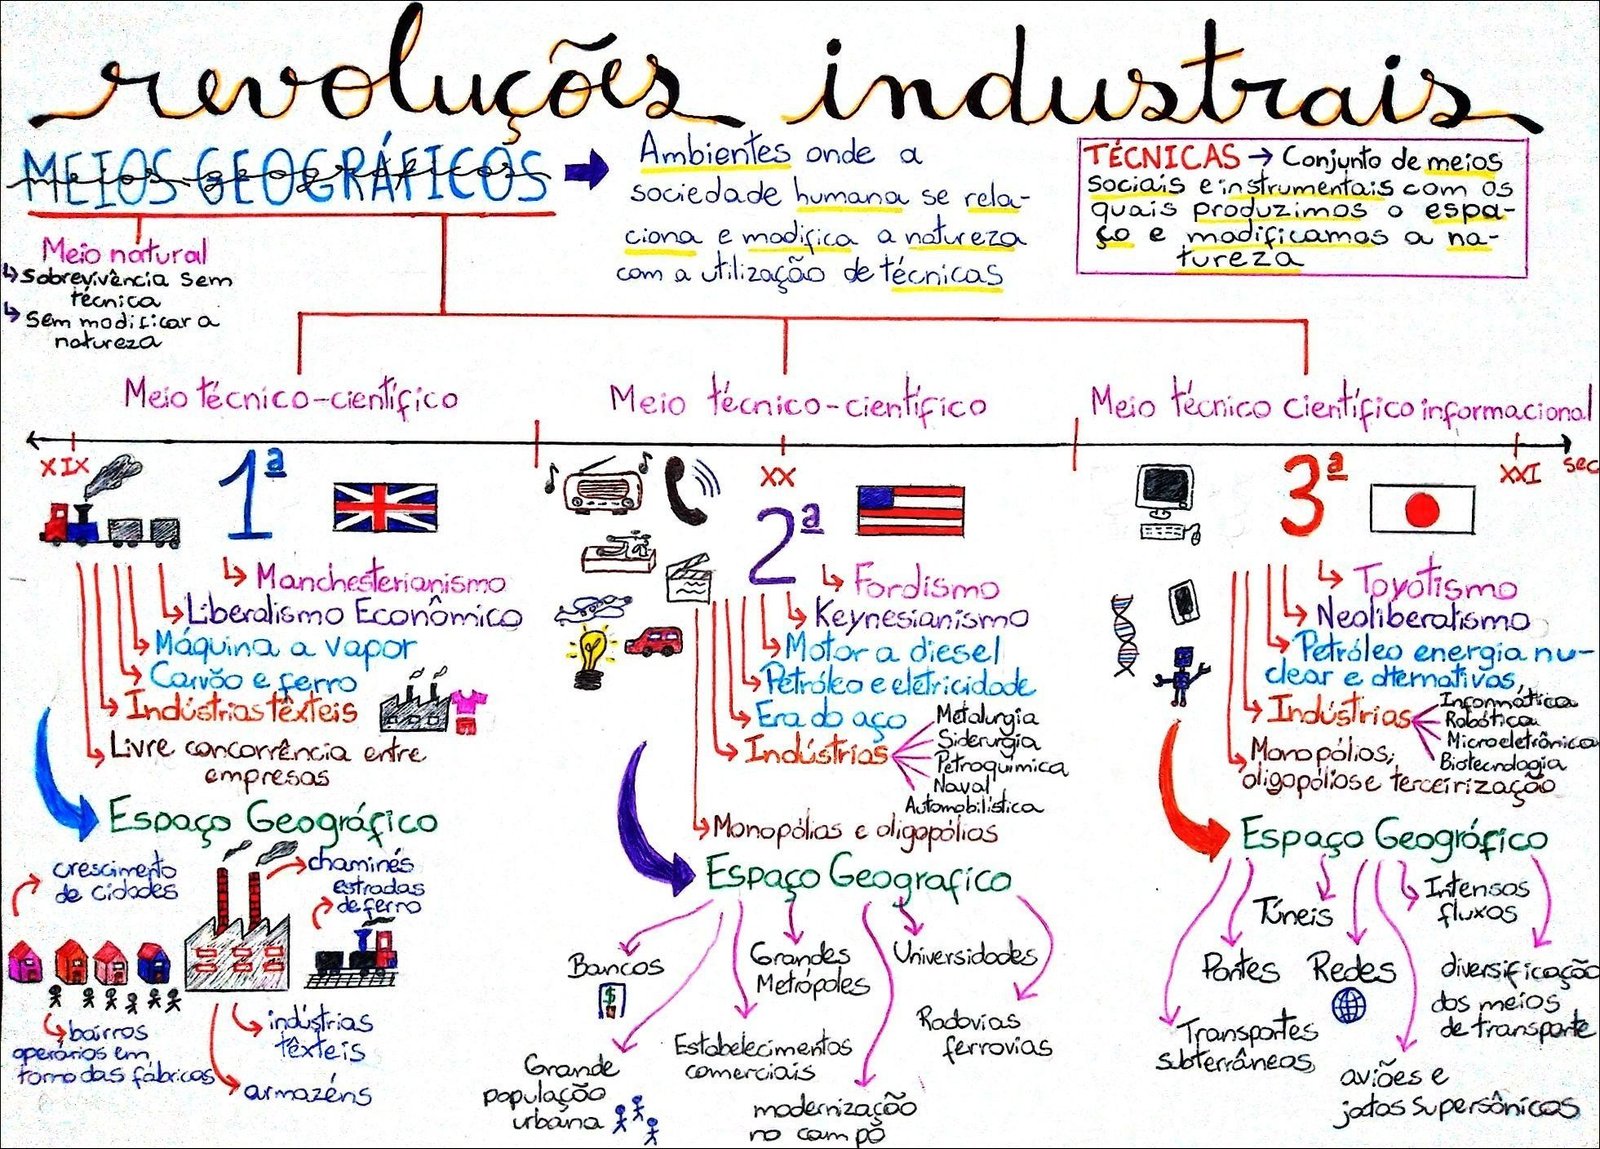 revoluções industrais
MEIOS GEOGRÁFICOS
Ambientes onde a
sociedade humana se rela-
ciona e modifica a natureza
com a utilização de técnicas
TÉCNICAS → Conjunto de meios
sociais e instrumentais com os
quais produzimos o espa-
ço e modificamos a na-
tureza
Meio natural
Sobrevivência sem
técnica
Sem modificar a
natureza
Meio técnico-científico
Meio técnico-científico
Meio técnico científico informacional
XIX
XX
XXI
sec
1ª
Manchesterianismo
Liberalismo Econômico
Máquina a vapor
Carvão e ferro
Indústrias têxteis
Livre concorrência entre
empresas
Espaço Geográfico
crescimento
de cidades
chaminés
estradas
de ferro
bairros
operários em
torno das fábricas
indústrias
têxteis
armazéns
2ª
Fordismo
Keynesianismo
Motor a diesel
Petróleo e eletricidade
Era do aço
Indústrias
Metalurgia
Siderurgia
Petroquímica
Naval
Automobilística
Monopólias e oligopólias
Espaço Geografico
Bancos
$
Grande
população
urbana
Estabelecimentos
comerciais
Grandes
Metrópoles
modernização
no campo
Universidades
Rodovias
ferrovias
3ª
Toyotismo
Neoliberalismo
Petróleo energia nu-
clear e alternativas,
Indústrias
Informática
Robótica
Microeletrônica
Biotecnologia
Monopólios,
oligopólios e terceirização
Espaço Geográfico
Túneis
Pontes
Transportes
subterrâneos
Redes
Intensos
fluxos
aviões e
jatos supersônicos
diversificação
dos meios
de transporte